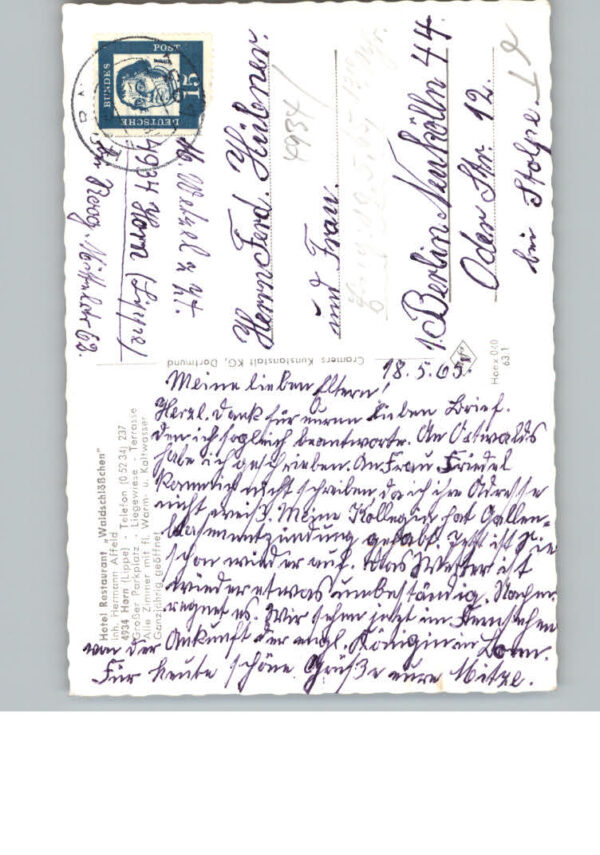 18.5.65.
Meine lieben Eltern!
Herzl. Dank für euren lieben Brief.
den ich sogleich beantworte. An Ostwalds
habe ich geschrieben. An Frau Friedel
kann ich nicht schreiben, da ich ihre Adresse
nicht weiß. Meine Kollegin hat Gallen-
blasenentzündung gehabt. Jetzt ist sie
schon wieder auf. Das Wetter ist
wieder etwas unbeständig.
regnet es. Wir sehen jetzt im Fernsehen
von der Ankunft der engl. Königin in Bonn.
Für heute schöne Grüße eure Mitze.
Hotel Restaurant „Waldschlößchen"
Inh. Hermann Alffeld
4934 Horn (Lippe) - Telefon (0 52 34) 237
Großer Parkplatz - Liegewiese - Terrasse
Alle Zimmer mit fl. Warm- u. Kaltwasser
Ganzjährig geöffnet
Cramers Kunstanstalt KG, Dortmund
Ho 63 1
DEUTSCHE BUNDESPOST
15
z. Zt.
4934 Horn (Lippe)
62.
Herrn Ferd. Hübner.
4934
und Frau.
1 Berlin Neukölln 44.
Oder Str. 12.
bei Stolpe.